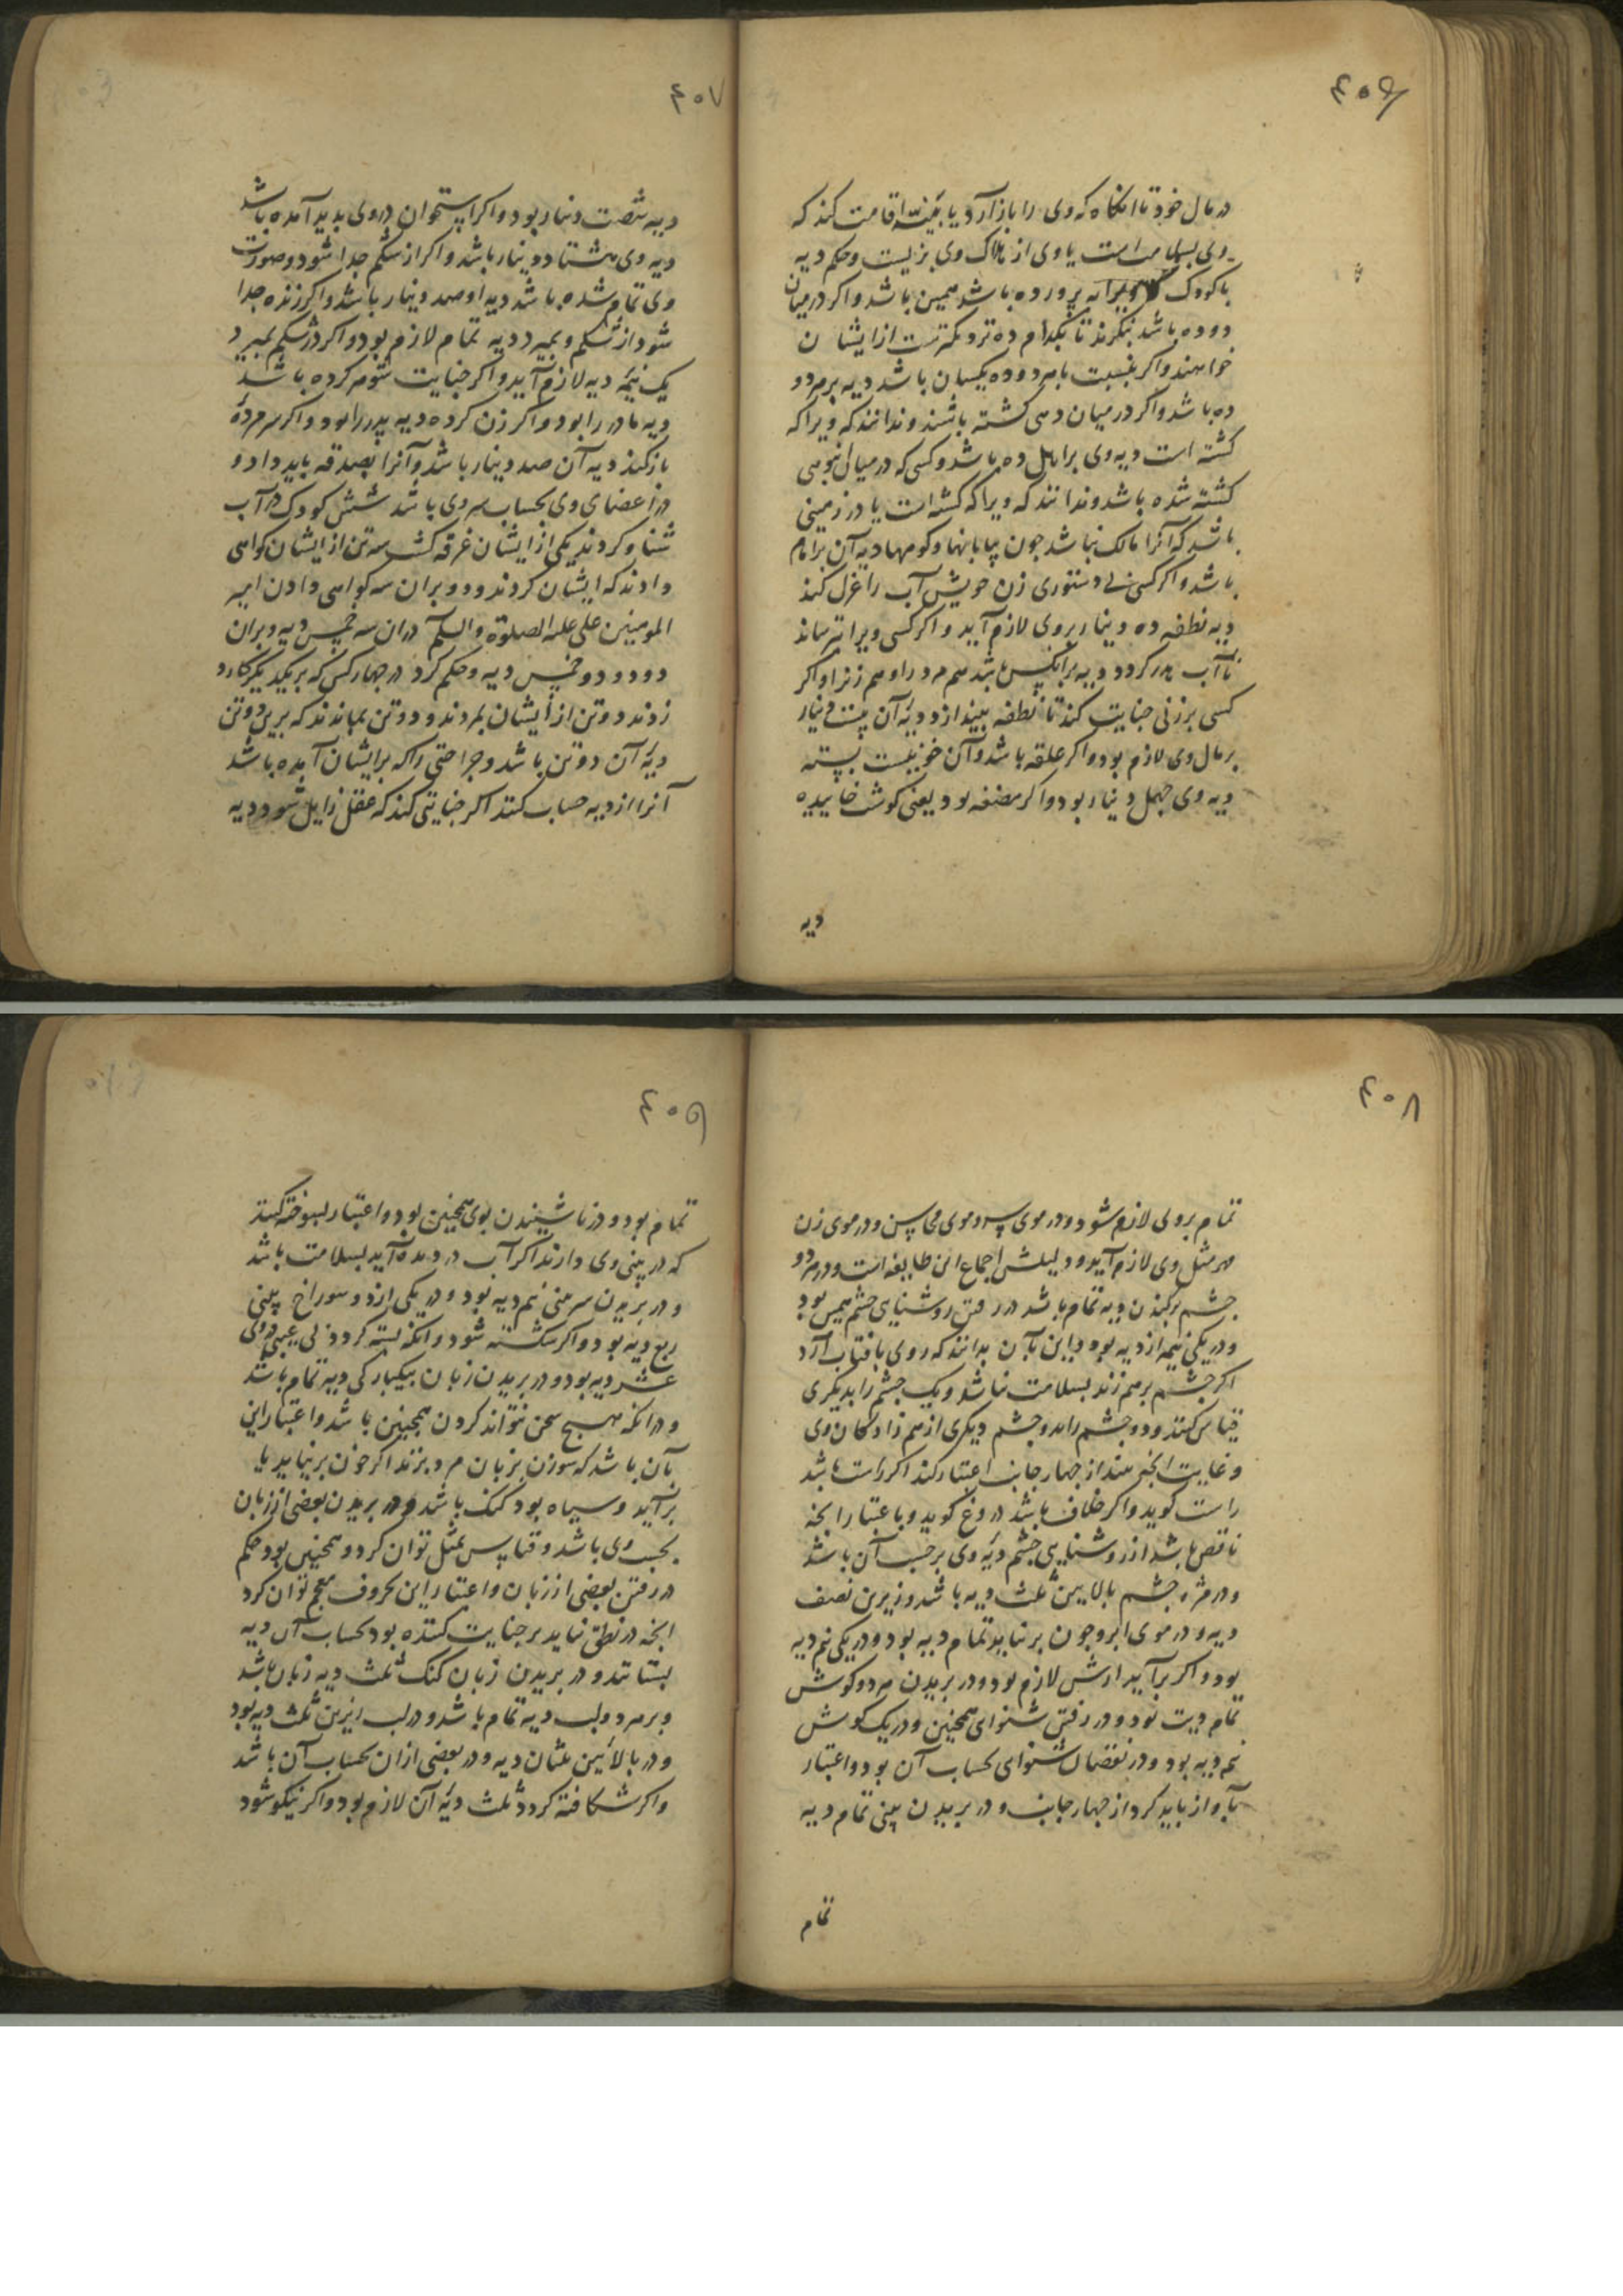 ٤٠٦
در مال خود تا انکاه که وی را باز آرد یا بینه اقامت کند که
وی بسلامت است یا وی از هلاک وی بریست و حکم دیه
با کودک که ویرا به پرورده باشد همین باشد و اکر در میان
دو ده باشد بنکرند تا بکدام ده نزدیکترست از ایشان
خواهند و اکر بنسبت با هر دو ده یکسان باشد دیه بر هر دو
ده باشد و اکر در میان دهی کشته باشند و ندانند که ویرا که
کشته است دیه وی بر اهل ده باشد و کسی که در میان انبوهی
کشته شده باشد و ندانند که ویرا که کشته است یا در زمینی
باشد که آنرا مالک نباشد جون بیابانها و کوهها دیه آن بر امام
باشد و اکر کسی بی دستوری زن خویش آب را عزل کند
دیه نطفه ده دینار بر وی لازم آید و اکر کسی ویرا بترساند
تا آب بدر کردد دیه بر آنکس باشد هم مرد را و هم زنرا و اکر
کسی بر زنی جنایت کند تا نطفه بیندازد دیهٔ آن بیست دینار
بر مال وی لازم بود و اکر علقه باشد و آن خونیست بسته
دیه وی جهل دینار بود و اکر مضغه بود یعنی کوشت خاییده
دیه
٤٠٧
دیه شصت دینار بود و اکر استخوان در وی بدید آمده باشد
دیه وی هشتاد دینار باشد و اکر از شکم جدا شود و صورت
وی تمام شده باشد دیه او صد دینار باشد و اکر زنده جدا
شود از شکم و بمیرد دیه تمام لازم بود و اکر در شکم بمیرد
یک نیمه دیه لازم آید و اکر جنایت شوهر کرده باشد
دیه مادر را بود و اکر زن کرده دیه پدر را بود و اکر سر مردهٔ
باز کند دیه آن صد دینار باشد و آنرا بصدقه باید داد و
در اعضای وی بحساب سر وی باشد شش کودک در آب
شنا و کردند یکی از ایشان غرقه کشت سه تن از ایشان کواهی
دادند که ایشان کردند و دو بران سه کواهی دادن امیر
المومنین علی علیه الصلوة والسلم دران سه خمس دیه و بران
دو دو خمس دیه و حکم کرد در جهار کس که بر یکدیکر کارد
زدند دو تن از ایشان بمردند و دو تن بماندند که برین دو تن
دیهٔ آن دو تن باشد و جراحتی را که بر ایشان آمده باشد
آنرا از دیه حساب کنند اکر جنایتی کند که عقل زایل شود دیه
٤٠٨
تمام بر وی لازم شود و در موی سر و موی محاسن و در موی زن
مهر مثل وی لازم آید و دلیلش اجماع این طایفه است و در هر دو
جشم برکندن دیه تمام باشد در رفتن روشنایی جشم همین بود
و در یکی نیمه از دیه بود و این بآن بدانند که روی بافتاب آرد
اکر جشم بر هم زند بسلامت نباشد و یک جشم را بدیکری
قیاس کنند و دو جشم را بدو جشم دیکری از هم زادکان وی
و غایت انچه بیند از جهار جانب اعتبار کند اکر راست باشد
راست کوید و اکر خلاف باشد دروغ کوید و با عتبار انچه
ناقص باشد از روشنایی جشم دیهٔ وی بر حسب آن باشد
و در مژه جشم بالایین ثلث دیه باشد و زیرین نصف
دیه و در موی ابرو جون بر نیاید تمام دیه بود و در یکی نیم دیه
بود و اکر بر آید ارش لازم بود و در بریدن هر دو کوش
تمام دیت بود و در رفتن شنوای همجنین و در یک کوش
نیم دیه بود و در نقصان شنوای بحساب آن بود و اعتبار
بآواز باید کرد از جهار جانب و در بریدن بینی تمام دیه
تمام
٤٠٩
تمام بود و در نا شنیدن بوی همجنین بود و اعتبار بسوخته کنند
که در بینی وی دارند اکر آب در دیده آید بسلامت باشد
و در بریدن سر بینی نیم دیه بود و در یکی از دو سوراخ بینی
ربع دیه بود و اکر شکسته شود و انکه بسته کردد بی عیبی دروی
عشر دیه بود و در بریدن زبان بیکبارکی دیه تمام باشد
و در انکه هیچ سخن نتواند کردن همجنین باشد و اعتبار این
بآن باشد که سوزن بزبان مرد بزنند اکر خون برنیاید یا
برآید و سیاه بود کنک باشد و در بریدن بعضی از زبان
بحسب وی باشد و قیاس بمثل توان کرد و همجنین بود حکم
در رفتن بعضی از زبان و اعتبار این بحروف معجم توان کرد
انچه در نطق نیاید بر جنایت کننده بود بحساب آن دیه
بستانند و در بریدن زبان کنک ثلث دیه زبان باشد
و بر هر دو لب دیه تمام باشد و در لب زیرین ثلث دیه بود
و در بالائین ثلثان دیه و در بعضی ازان بحساب آن باشد
و اکر شکافته کردد ثلث دیهٔ آن لازم بود و اکر نیکو شود